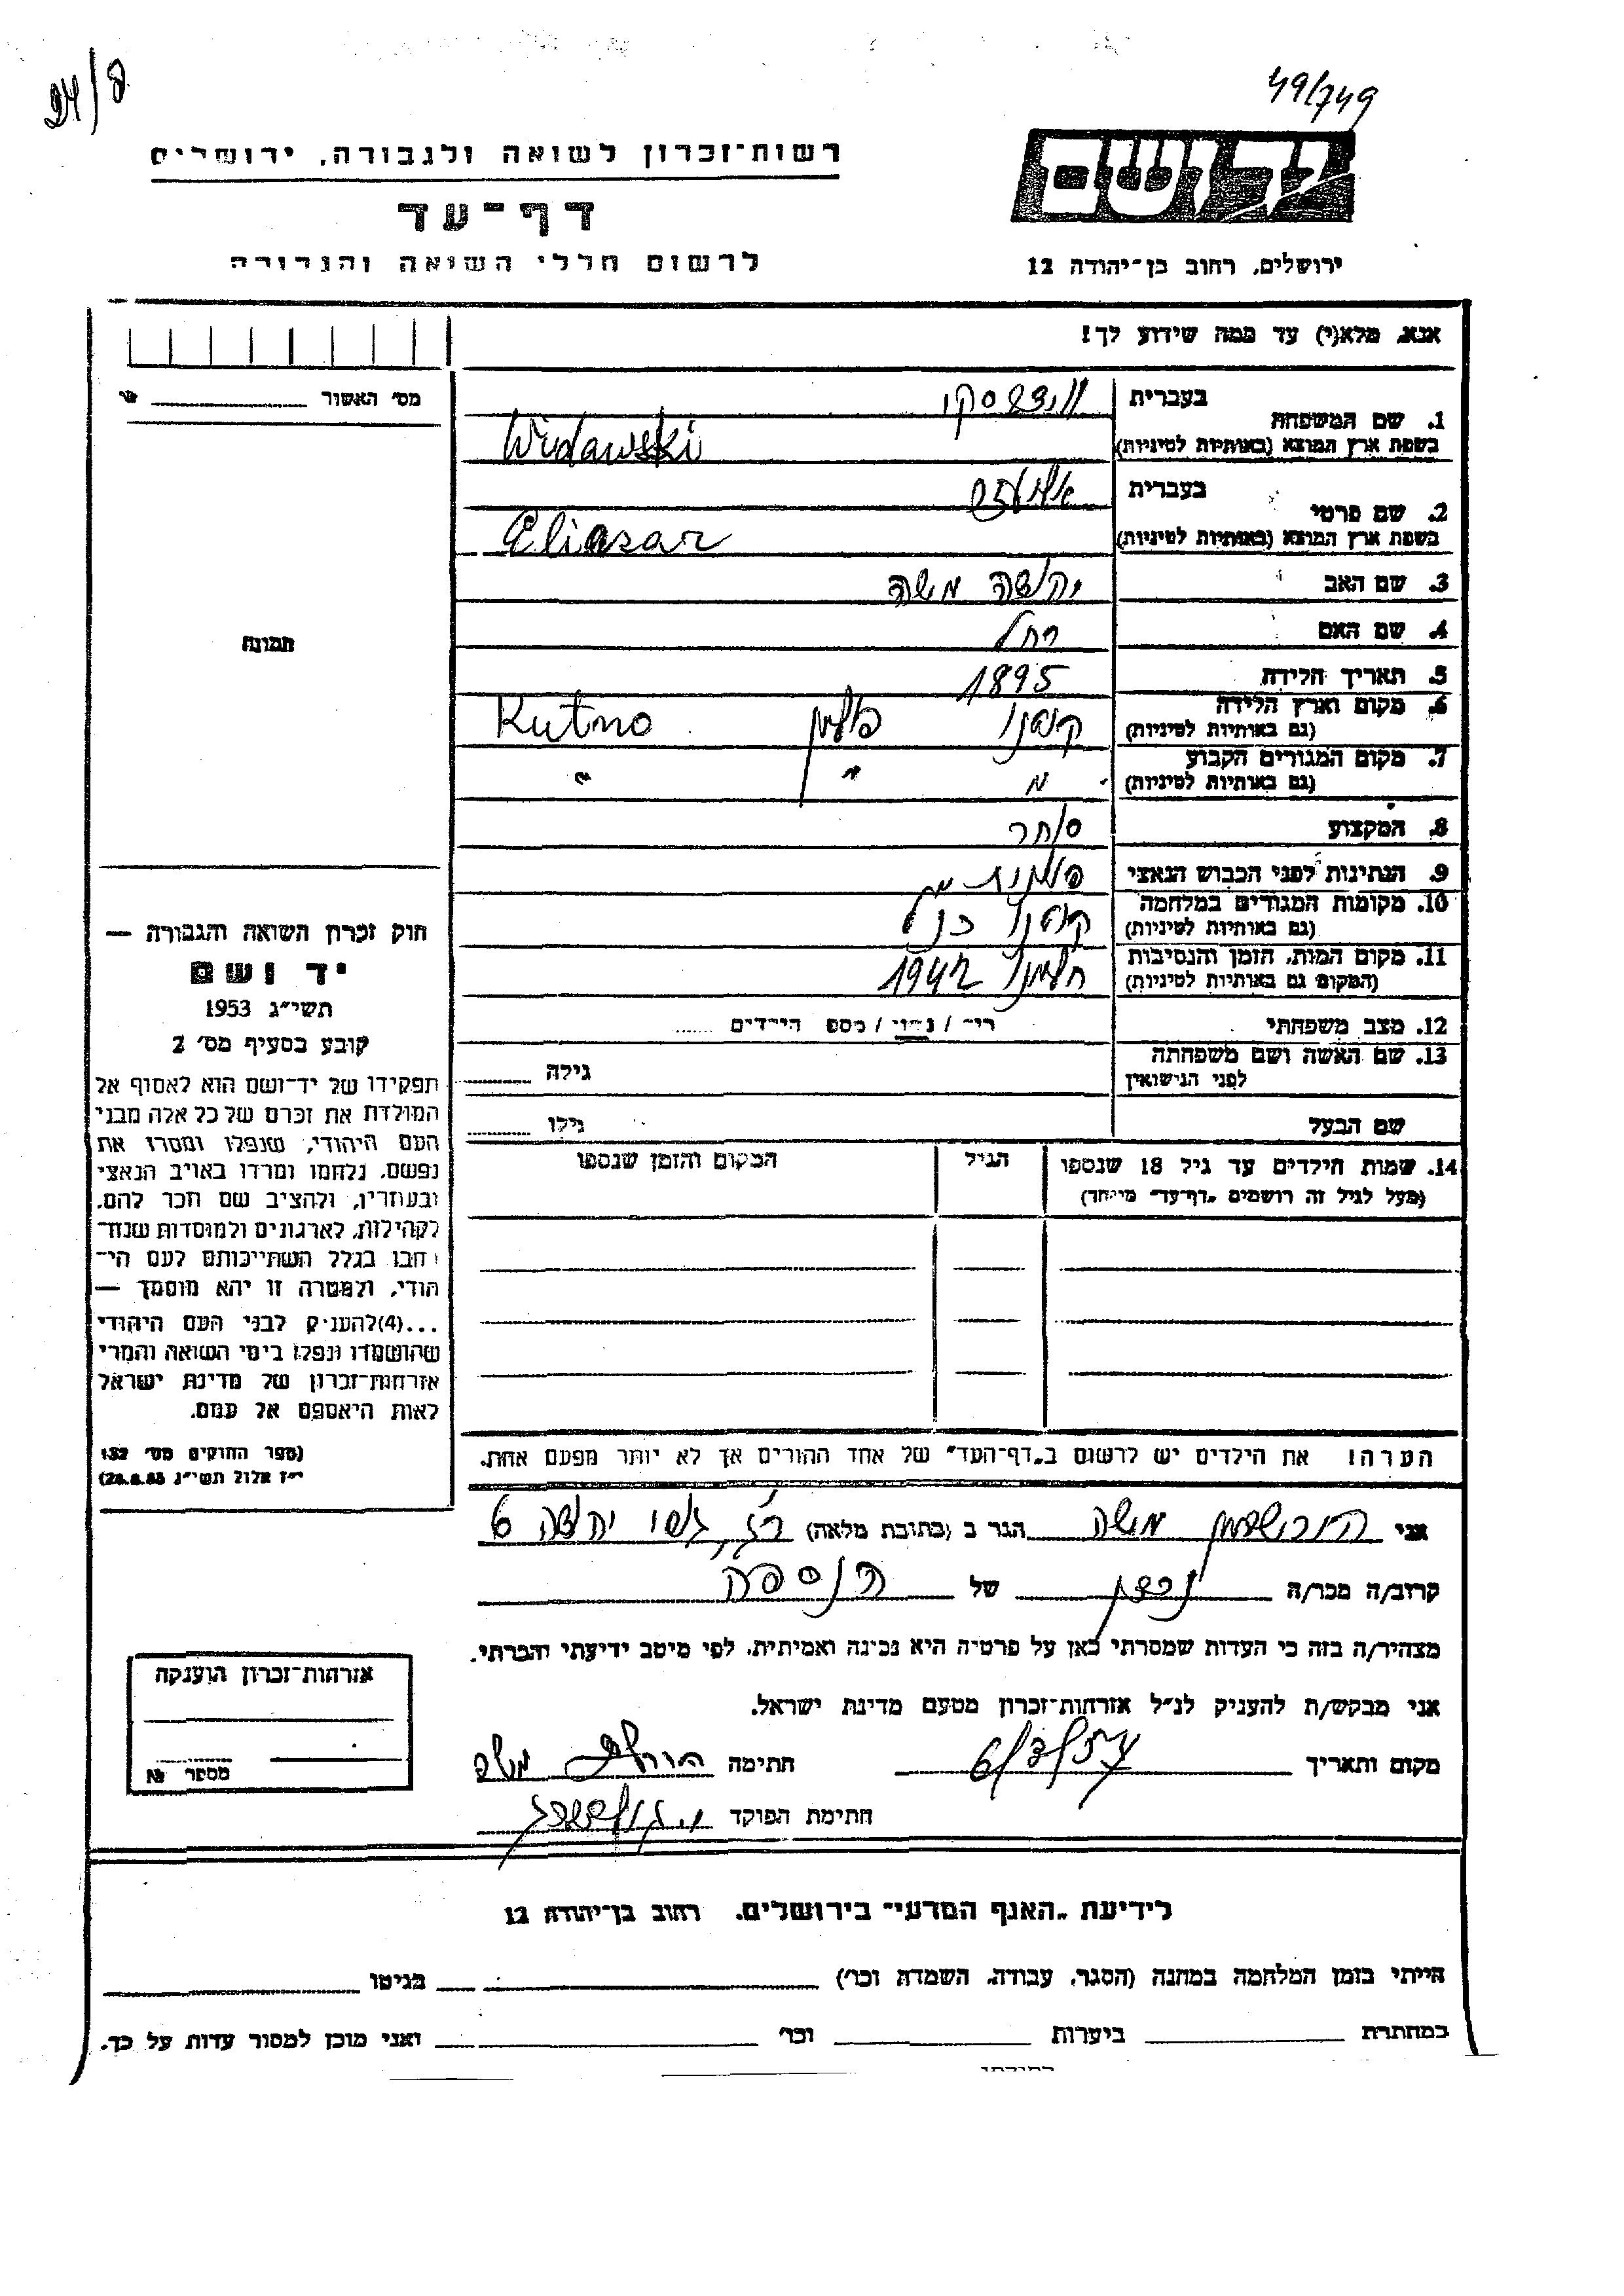 49/749
רשות־זכרון לשואה ולגבורה, ירושלים
דף־עד
לרשום חללי השואה והגבורה
ידושם
ירושלים, רחוב בן־יהודה 12
אנא, מלא(י) עד כמה שידוע לך!
מס׳ האשור
1. שם המשפחה
בעברית
בשפת ארץ המוצא (באותיות לטיניות)
Widawski
2. שם פרטי
בעברית
בשפת ארץ המוצא (באותיות לטיניות)
Eliasar
3. שם האב יהודה משה
4. שם האם רחל
5. תאריך הלידה 1895
6. מקום וארץ הלידה קוטנו פולין Kutno
(גם באותיות לטיניות)
7. מקום המגורים הקבוע " " "
(גם באותיות לטיניות)
8. המקצוע סוחר
9. הנתינות לפני הכבוש הנאצי פולנית
10. מקומות המגורים במלחמה קוטנו כנ"ל
(גם באותיות לטיניות)
11. מקום המות, הזמן והנסיבות חלמנו 1942
(המקום גם באותיות לטיניות)
12. מצב משפחתי
רו׳ / נשוי / מספר הילדים
13. שם האשה ושם משפחתה
לפני הנישואין
גילה
שם הבעל
גילו
14. שמות הילדים עד גיל 18 שנספו
(מעל לגיל זה רושמים „דף־עד״ מיוחד)
הגיל
המקום והזמן שנספו
תמונה
חוק זכרון השואה והגבורה —
יד ושם
תשי״ג 1953
קובע בסעיף מס׳ 2
תפקידו של יד־ושם הוא לאסוף אל
המולדת את זכרם של כל אלה מבני
העם היהודי, שנפלו ומסרו את
נפשם, נלחמו ומרדו באויב הנאצי
ובעוזריו, ולהציב שם וזכר להם,
לקהילות, לארגונים ולמוסדות שנח־
רבו בגלל השתייכותם לעם הי־
הודי, ולמטרה זו יהא מוסמך —
...(4)להעניק לבני העם היהודי
שהושמדו ונפלו בימי השואה והמרי
אזרחות־זכרון של מדינת ישראל
לאות היאספם אל עמם.
(ספר החוקים מס׳ 132
י״ז אלול תשי״ג 28.8.53)
הערה! את הילדים יש לרשום ב„דף־העד״ של אחד ההורים אך לא יותר מפעם אחת.
אני משה הגר ב (כתובת מלאה) יהודה 6
קרוב/ה מכר/ה של הנספה
מצהיר/ה בזה כי העדות שמסרתי כאן על פרטיה היא נכונה ואמיתית, לפי מיטב ידיעתי והכרתי.
אני מבקש/ת להעניק לנ״ל אזרחות־זכרון מטעם מדינת ישראל.
מקום ותאריך חתימה
חתימת הפוקד
אזרחות־זכרון הוענקה
מספר №
לידיעת „האגף המדעי״ בירושלים, רחוב בן־יהודה 12
הייתי בזמן המלחמה במחנה (הסגר, עבודה, השמדה וכו׳) בגיטו
במחתרת ביערות וכו׳ ואני מוכן למסור עדות על כך.